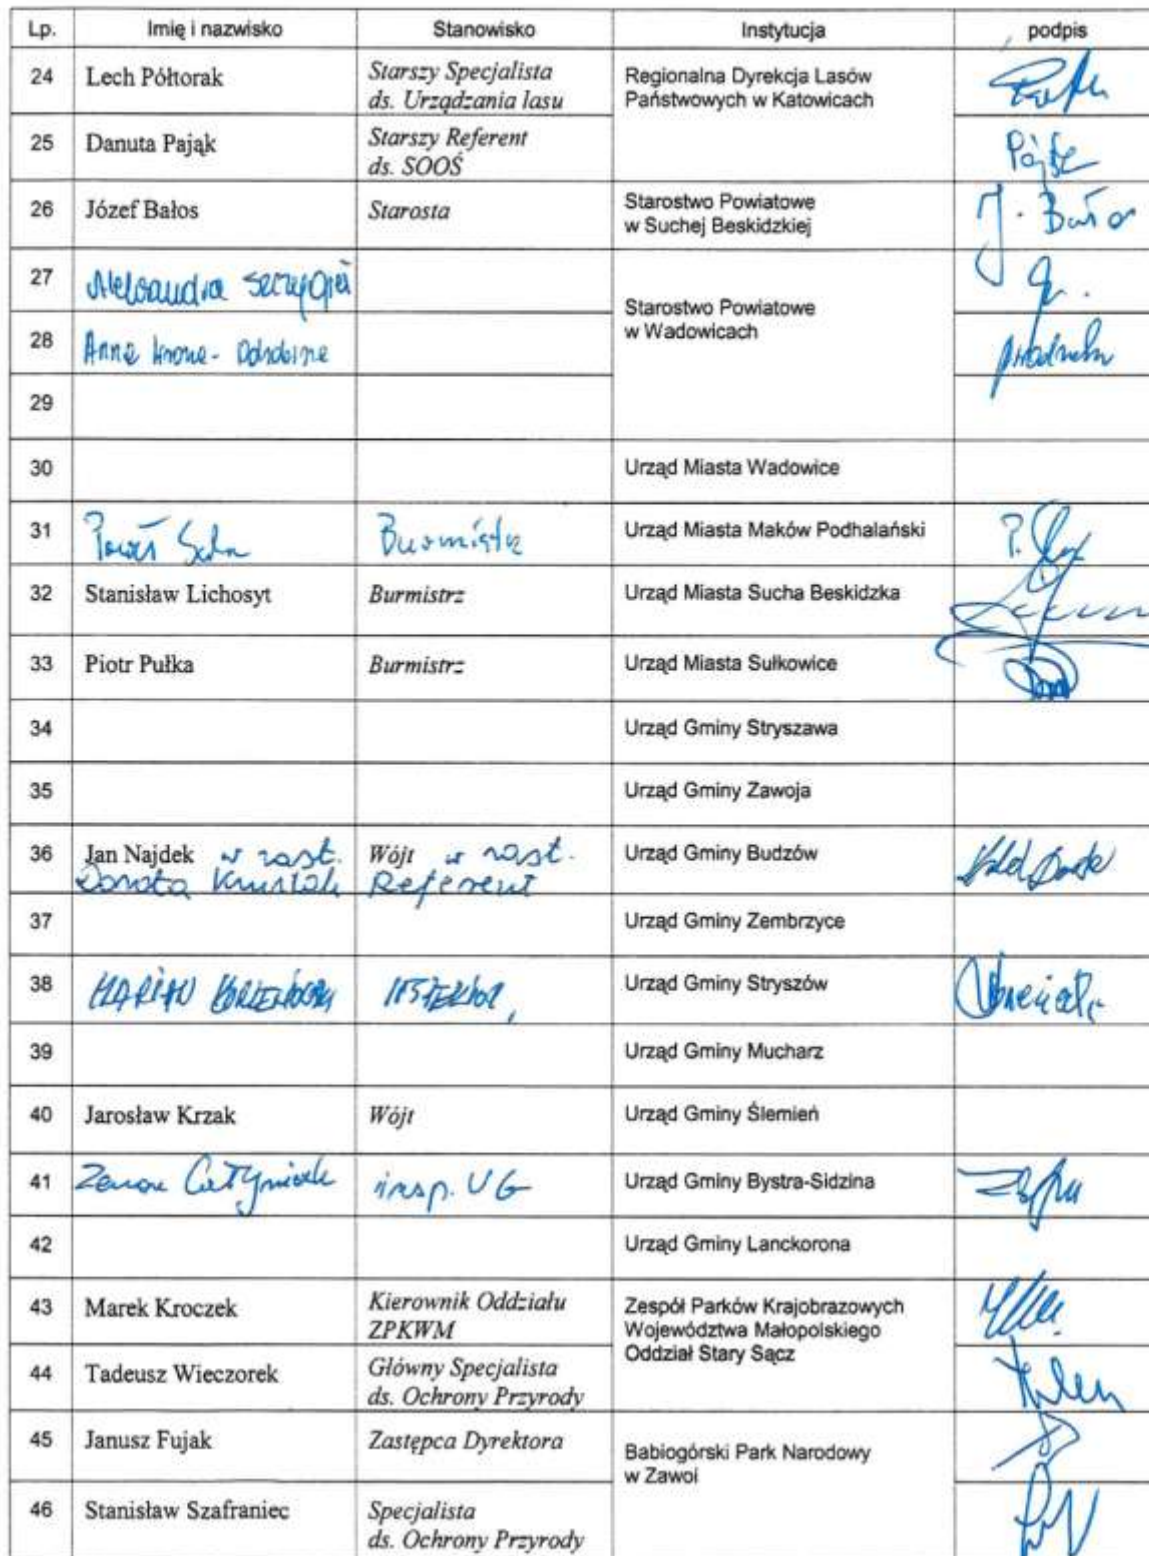 Lp. Imię i nazwisko Stanowisko Instytucja podpis
24 Lech Półtorak Starszy Specjalista Regionalna Dyrekcja Lasów
ds. Urządzania lasu Państwowych w Katowicach
25 Danuta Pająk Starszy Referent
ds. SOOŚ
26 Józef Bałos Starosta Starostwo Powiatowe
w Suchej Beskidzkiej J. Bałos
27 Aleksandra Szczygieł
Starostwo Powiatowe
28 Anna w Wadowicach
29
30 Urząd Miasta Wadowice
31 Paweł Burmistrz Urząd Miasta Maków Podhalański
32 Stanisław Lichosyt Burmistrz Urząd Miasta Sucha Beskidzka
33 Piotr Pułka Burmistrz Urząd Miasta Sułkowice
34 Urząd Gminy Stryszawa
35 Urząd Gminy Zawoja
36 Jan Najdek w zast. Wójt w zast. Urząd Gminy Budzów
Dorota Referent
37 Urząd Gminy Zembrzyce
38 MARIAN Urząd Gminy Stryszów
39 Urząd Gminy Mucharz
40 Jarosław Krzak Wójt Urząd Gminy Ślemień
41 Zenon insp. UG Urząd Gminy Bystra-Sidzina
42 Urząd Gminy Lanckorona
43 Marek Kroczek Kierownik Oddziału Zespół Parków Krajobrazowych
ZPKWM Województwa Małopolskiego
Oddział Stary Sącz
44 Tadeusz Wieczorek Główny Specjalista
ds. Ochrony Przyrody
45 Janusz Fujak Zastępca Dyrektora Babiogórski Park Narodowy
w Zawoi
46 Stanisław Szafraniec Specjalista
ds. Ochrony Przyrody